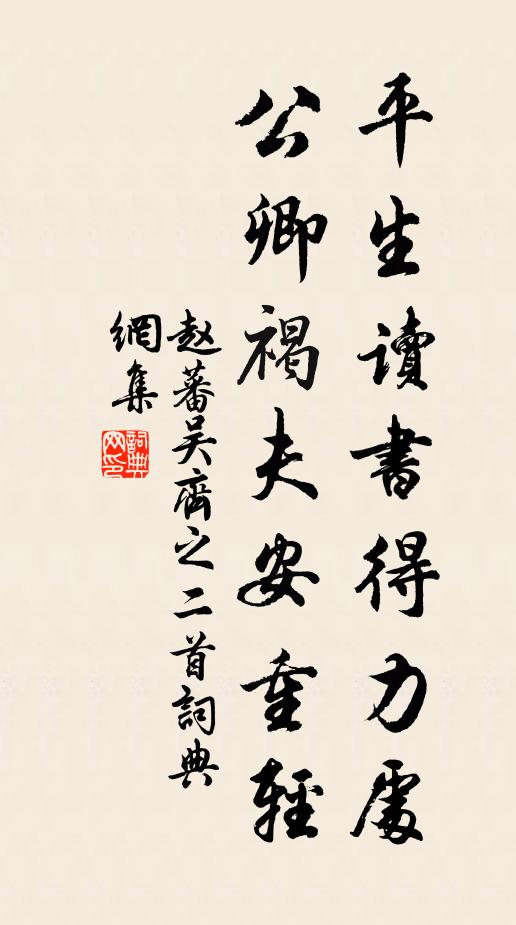 平生讀書得力處
公卿褐夫安重輕
赵蕃吴齊之二首詞典
網集
詞典
网印